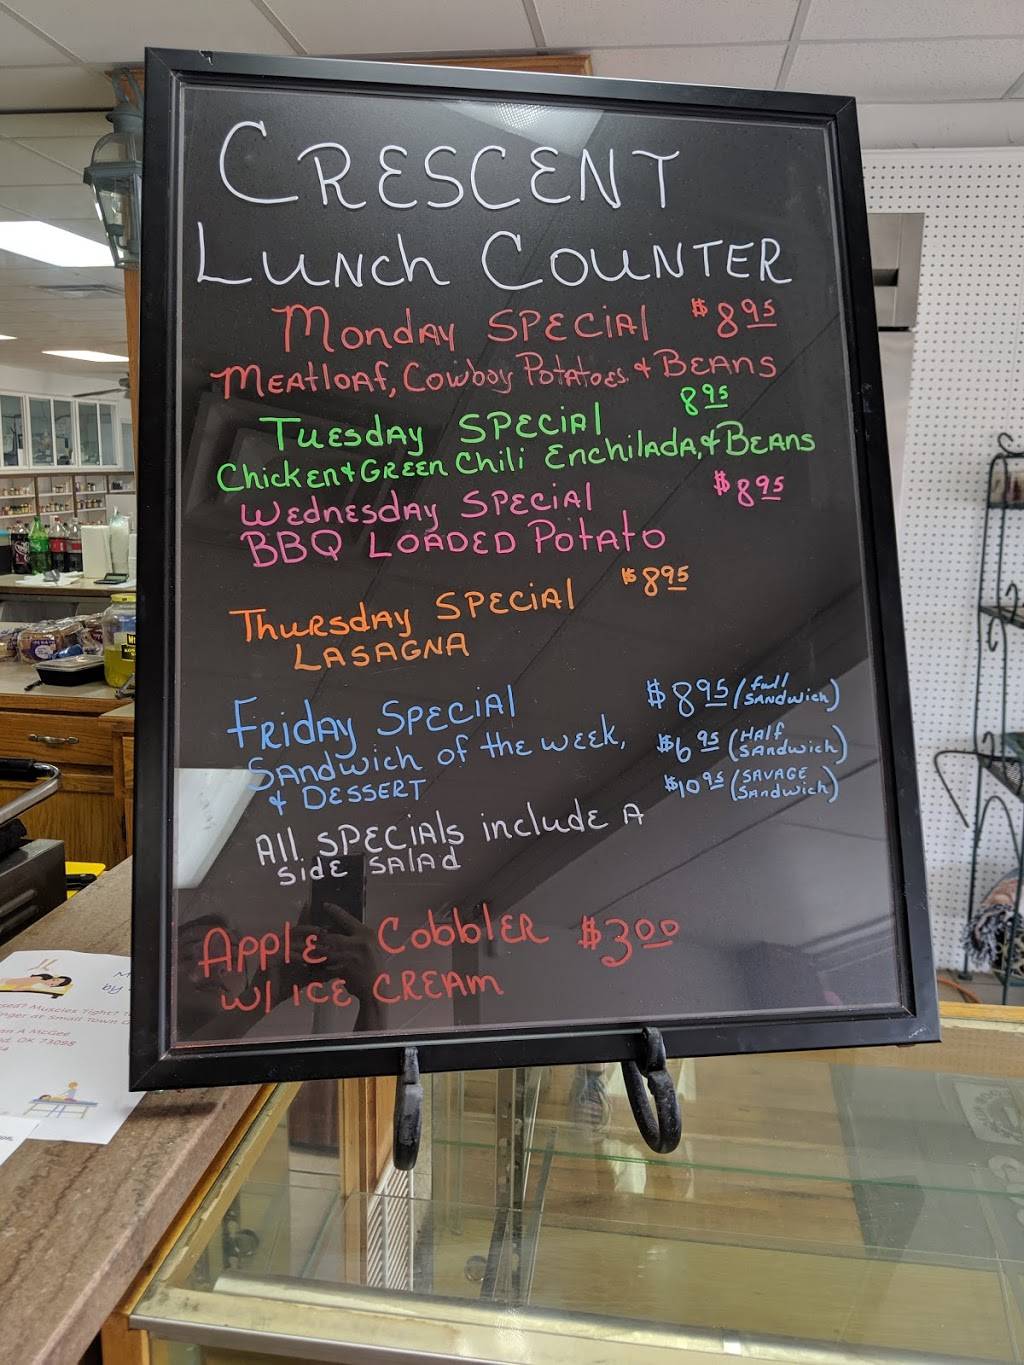 CRESCENT
LUNCH COUNTER
Monday SPECIAL $8.95
MEATLOAF, COWBOY POTATOES & BEANS
TUESDAY SPECIAL 8.95
Chicken & GREEN Chili Enchilada, & BEANS
Wednesday SPECIAL $8.95
BBQ LOADED POTATO
Thursday SPECIAL $8.95
LASAGNA
FRIDAY SPECIAL $8.95 (full SANDWICH)
SANDWICH of the week, $6.95 (HALF SANDWICH)
& DESSERT $10.95 (SAVAGE SANDWICH)
All SPECIALS include A
SIDE SALAD
APPLE CobblER $3.00
W/ ICE CREAM
Muscles Tight?
at Small Town
A McGee
OK 73095